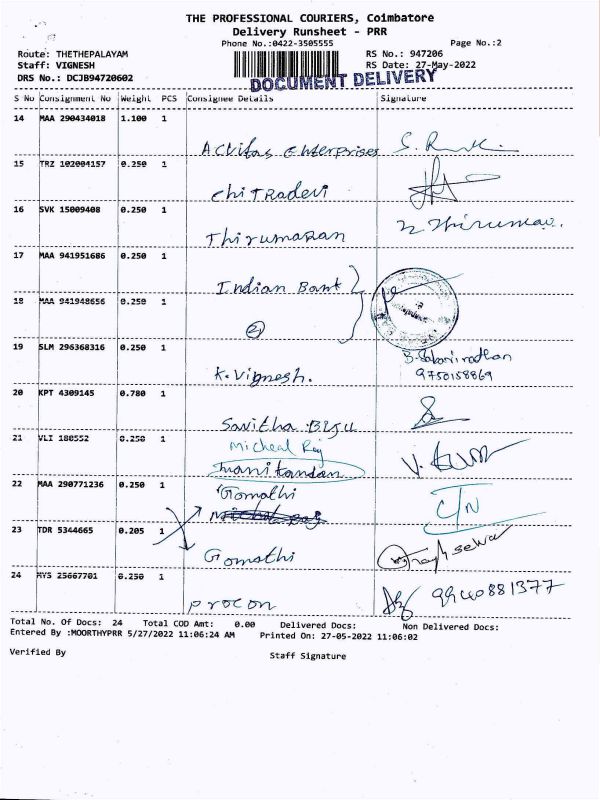 THE PROFESSIONAL COURIERS, Coimbatore
Delivery Runsheet - PRR
Phone No.:0422-3505555 Page No.:2
Route: THETHEPALAYAM RS No.: 947206
Staff: VIGNESH RS Date: 27-May-2022
DRS No.: DCJB94720602
DOCUMENT DELIVERY
S No Consignment No Weight PCS Consignee Details Signature
14 MAA 290434018 1.100 1
Enterprises
15 TRZ 102004157 0.250 1
chiTRadevi
16 SVK 15009408 0.250 1
Thirumaran
17 MAA 941951686 0.250 1
Indian Bank
18 MAA 941948656 0.250 1
2
19 SLM 296368316 0.250 1
K. Vignesh. 9750158869
20 KPT 4309145 0.780 1
Savitha Biju
21 VLI 180552 0.250 1
Micheal Raj
manikandan
22 MAA 290771236 0.250 1
Gomathi
23 TDR 5344665 0.205 1
Gomathi
24 MYS 25667701 0.250 1
procon 9940881377
Total No. Of Docs: 24 Total COD Amt: 0.00 Delivered Docs: Non Delivered Docs:
Entered By :MOORTHYPRR 5/27/2022 11:06:24 AM Printed On: 27-05-2022 11:06:02
Verified By Staff Signature